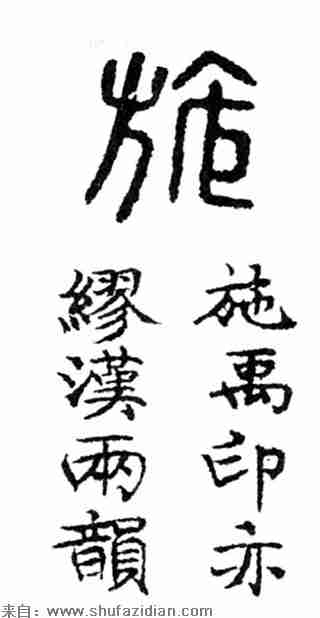 施
施禹印亦
繆漢兩韻
来自：www.shufazidian.com